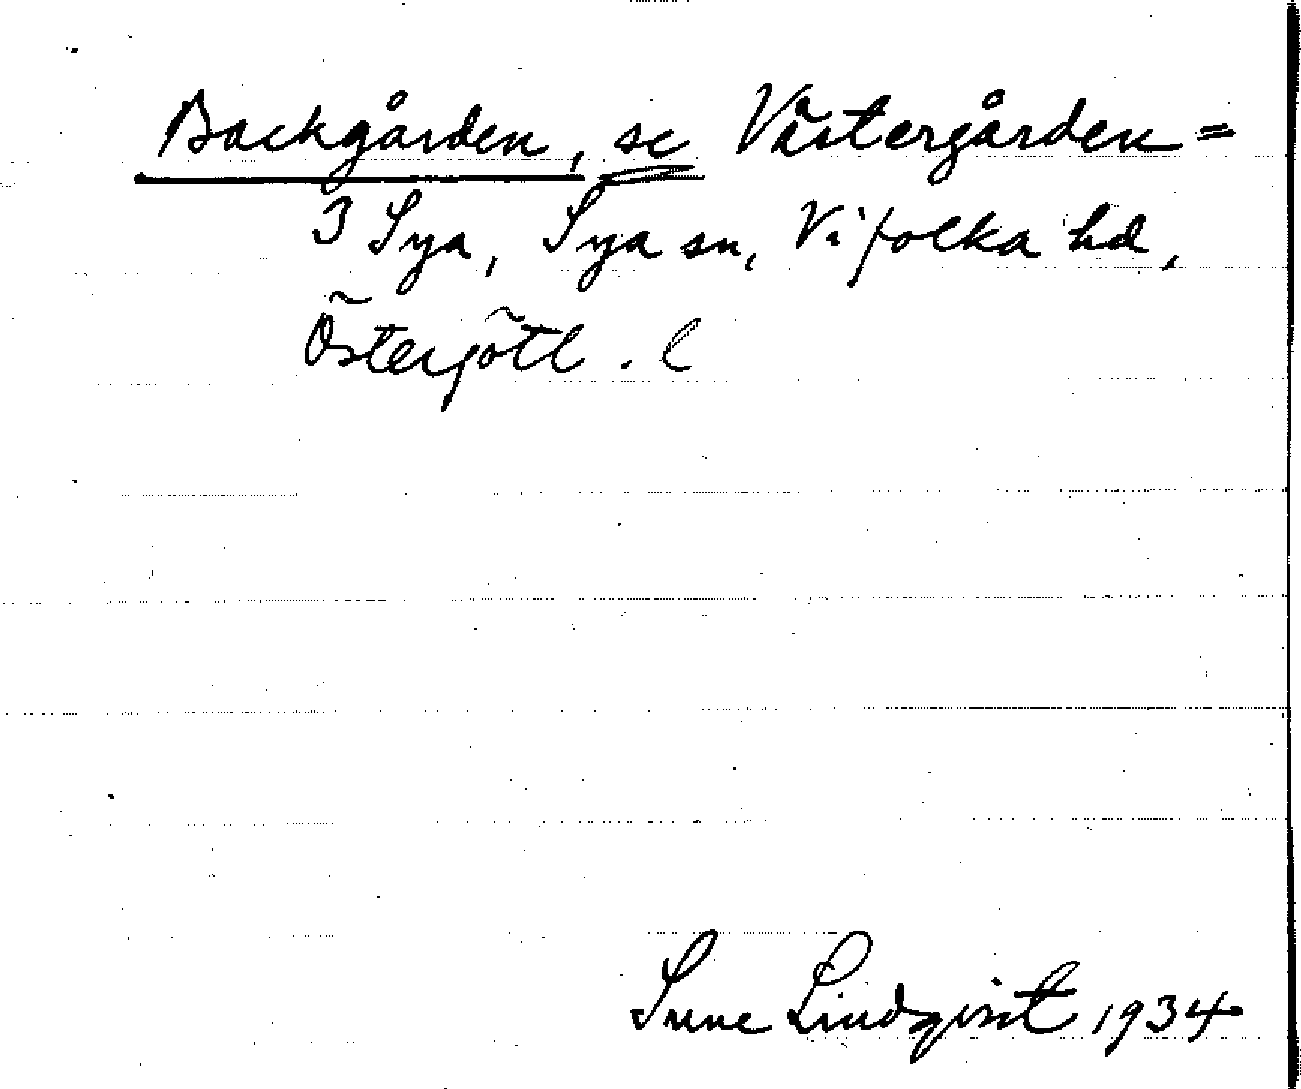 Backgården, se Västergården =
3 Sya, Sya sn, Vifolka hd,
Östergötl. l
Sune Lindqvist 1934